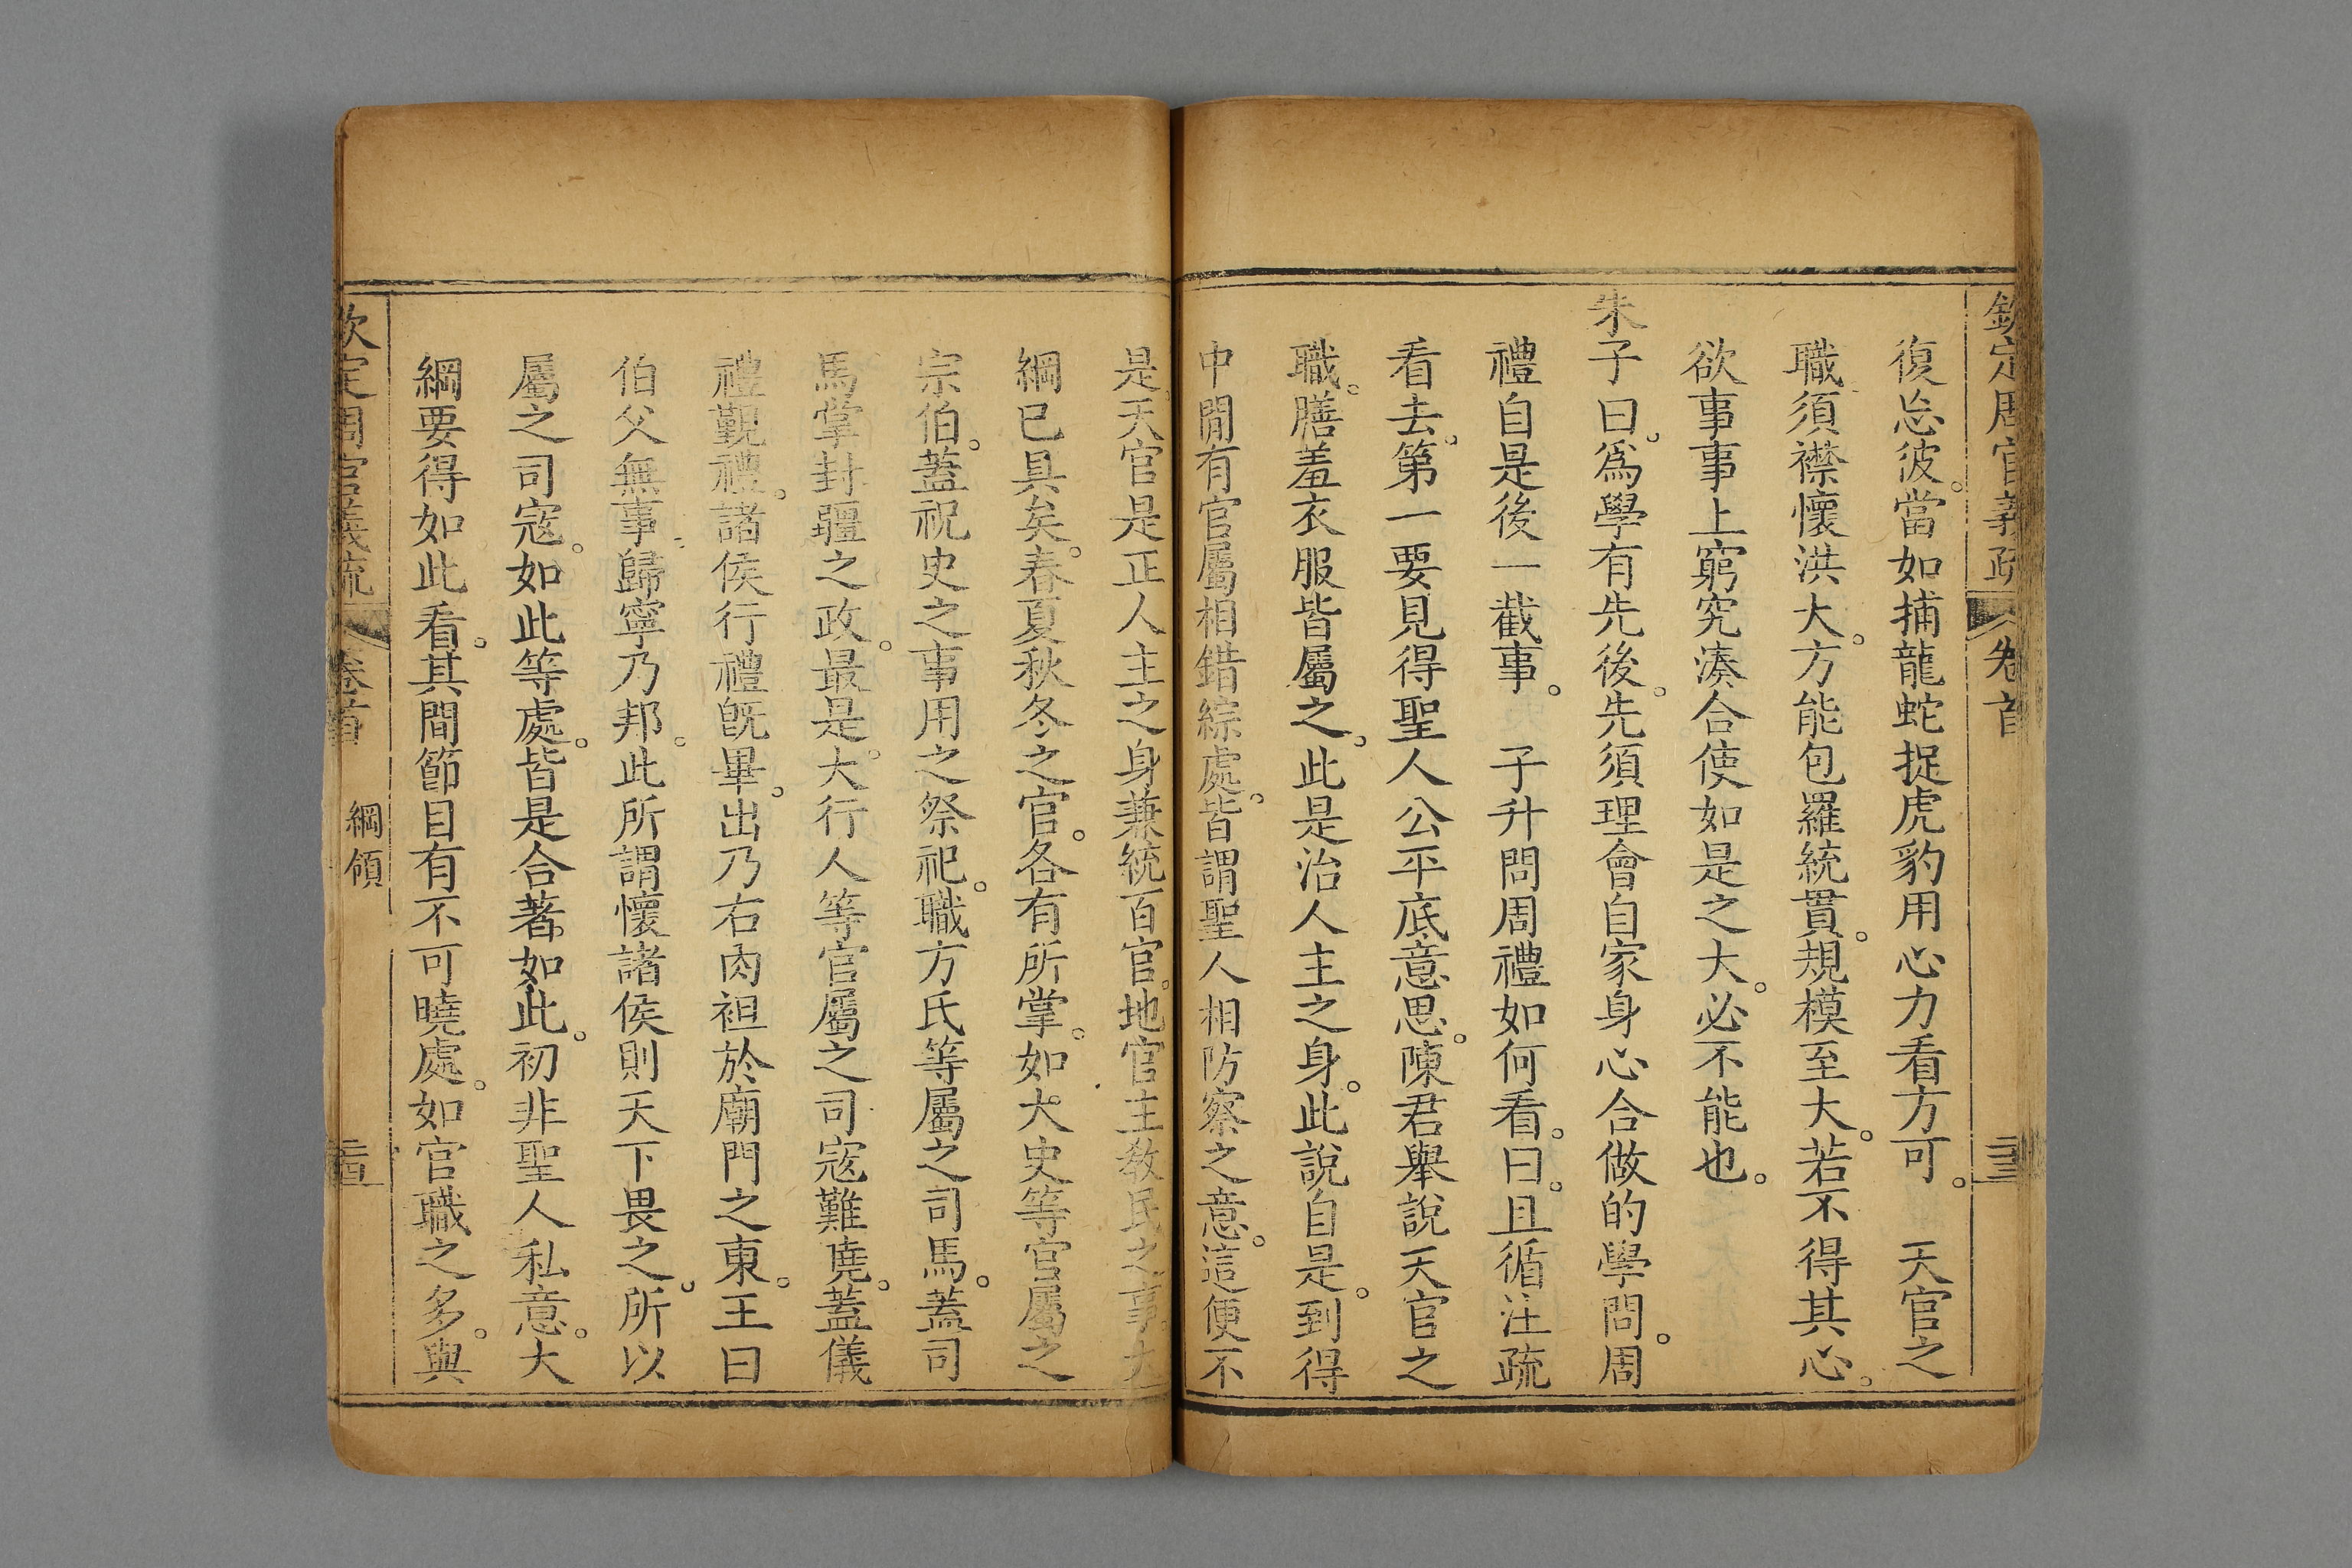 欽定周官義疏 卷首
復忘彼。當如捕龍蛇捉虎豹用心力看方可。　天官之
職須襟懷洪大。方能包羅統貫。規模至大。若不得其心。
欲事事上窮究湊合使如是之大。必不能也。
朱子曰。爲學有先後。先須理會自家身心合做的學問。周
禮自是後一截事。　子升問周禮如何看。曰。且循注疏
看去。第一要見得聖人公平底意思。陳君舉說天官之
職。膳羞衣服皆屬之。此是治人主之身。此說自是。到得
中閒有官屬相錯綜處。皆謂聖人相防察之意。這便不
是。天官是正人主之身兼統百官。地官主敎民之事。大
綱已具矣。春夏秋冬之官。各有所掌。如大史等官屬之
宗伯。蓋祝史之事用之祭祀。職方氏等屬之司馬。蓋司
馬掌封疆之政。最是。大行人等官屬之司寇難曉。蓋儀
禮覲禮。諸侯行禮旣畢。出乃右肉袒於廟門之東。王曰
伯父無事歸寧乃邦。此所謂懷諸侯則天下畏之。所以
屬之司寇。如此等處。皆是合著如此。初非聖人私意。大
綱要得如此看。其間節目有不可曉處。如官職之多。與
欽定周官義疏 卷首 綱領